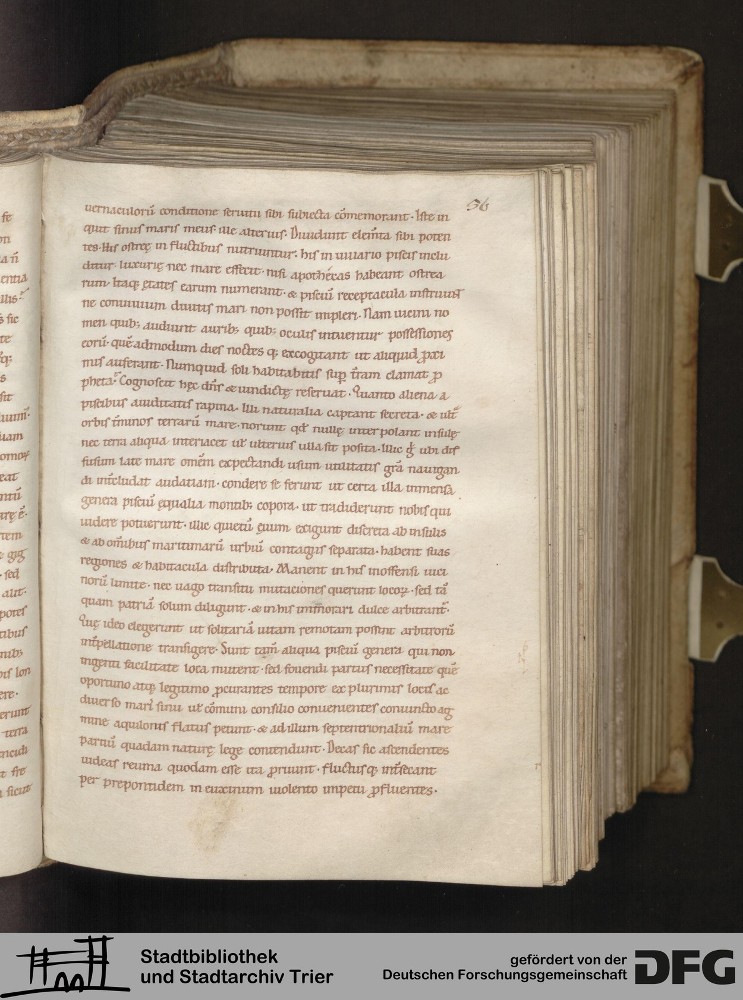 96
uernaculorū conditione seruitii sibi subiecta cōmemorant. Iste in
quit sinus maris meus ille alterius. Diuidunt elem̄ta sibi poten
tes. His ostreę in fluctibus nutriuntur. his in uiuario piscis inclu
ditur. luxurię nec mare effecit. nisi apothecas habeant ostrea
rum. Itaq; ętates earum numerant. & pisciū receptacula instruunt
ne conuiuium diuitis mari non possit impleri. Nam uicini no
men quib; audiunt aurib; quib; oculis intuentur possessiones
eorū. quēadmodum dies noctes q; excogitant ut aliquid ꝓxi
mis auferant. Nunquid soli habitabitis sup̄ t̄ram clamat ꝓ
pheta. Cognoscit hęc dn̄s & uindictę reseruat. Quanto aliena a
piscibus auiditatis rapina. Illi naturalia captant secreta. & ult̄
orbis t̄minos terrarū mare. norunt qd̄ nullę inter polant insulę
nec terra aliqua interiacet uel ulterius ulla sit posita. Illic g̊ ubi dif
fusum late mare omēm expectandi usum utilitatis gr̄a nauigan
di int̄cludat audatiam. condere se ferunt ut certa illa inmensa
genera pisciū ęqualia montib; copora. ut tradiderunt nobis qui
uidere potuerunt. illic quietū ęuum exigunt discreta ab insulis
& ab om̄ibus maritimarū urbiū contagiis separata. habent suas
regiones & habitacula distributa. Manent in his inoffensi uici
norū limite. nec uago transitu mutationes querunt locoꝝ. sed tā
quam patriā solum diligunt. & in his inmorari dulce arbitrant̄.
Quę ideo elegerunt ut solitariā uitam remotam possint arbitrorū
int̄pellatione transigere. Sunt tam̄ aliqua pisciū genera qui non
ingenti facilitate loca mutent. sed fouendi partus necessitate quē
oportuno atq; legitimo ꝓcurantes tempore ex plurimis locis ac
diuerso maris sinu uel cōmuni consilio conuenientes coniuncto ag
mine aquilonis flatus petunt. & ad illum septentrionaliū mare
partiū quadam naturę lege contendunt. Decas sic ascendentes
uideas reuma quodam esse ita ꝓruunt. fluctusq; int̄secant
per prepontidem in euxinum uiolento impetu ꝓfluentes.
Stadtbibliothek
und Stadtarchiv Trier
gefördert von der
Deutschen Forschungsgemeinschaft
DFG